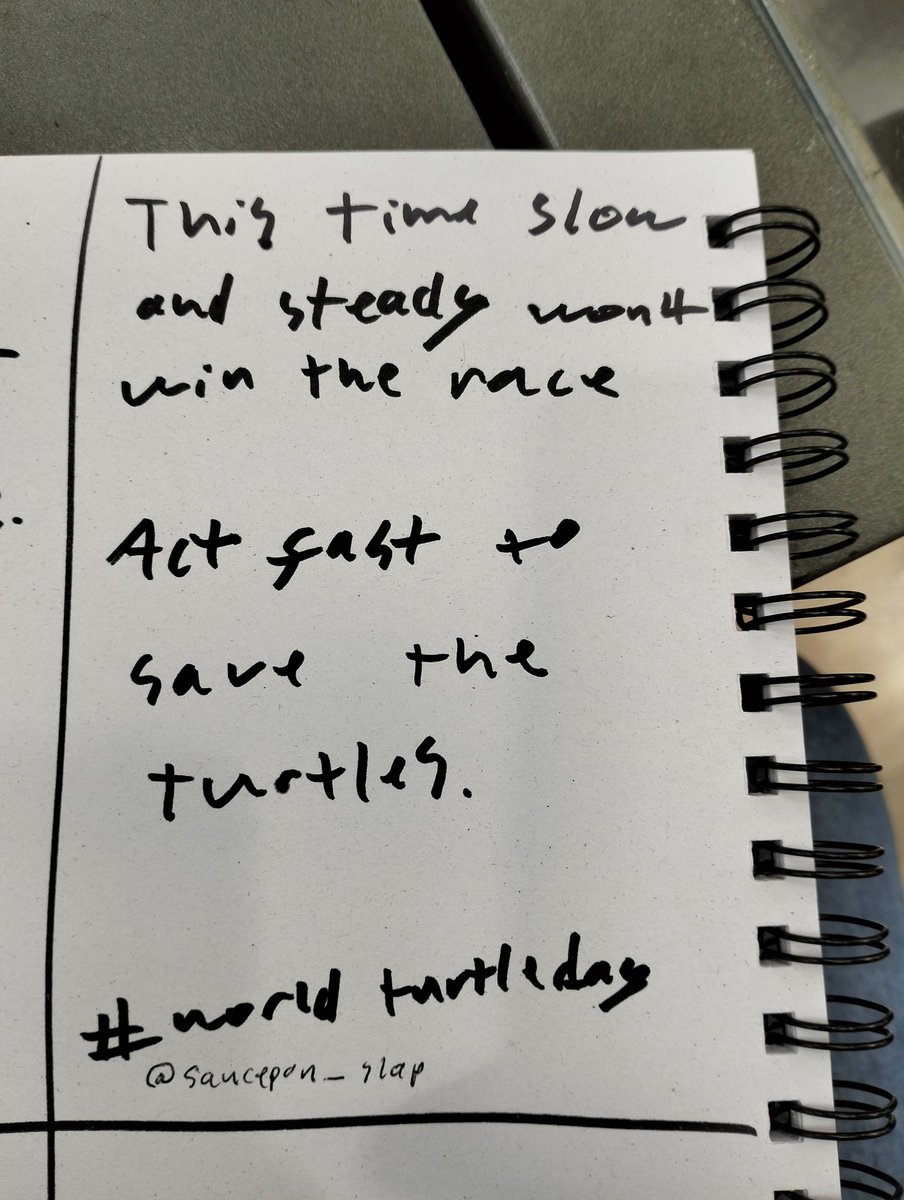 This time slow
and steady wont
win the race
Act fast to
save the
turtles.
#world turtleday
@saucepon_slap